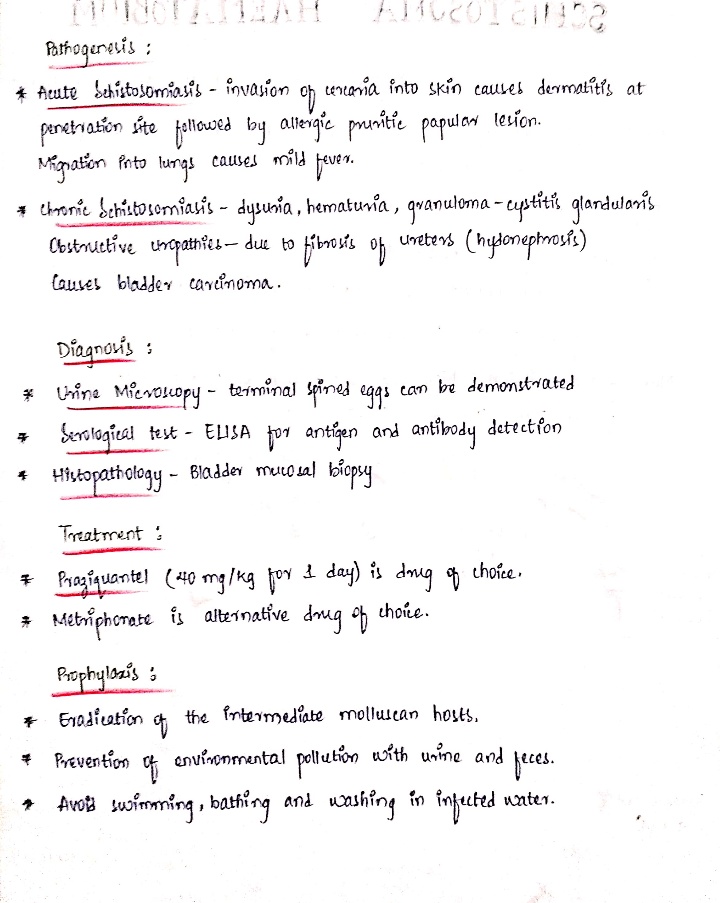 SCHISTOSOMA HAEMATOBIUM
Pathogenesis :
* Acute Schistosomiasis - invasion of cercaria into skin causes dermatitis at
penetration site followed by allergic pruritic papular lesion.
Migration into lungs causes mild fever.
* Chronic Schistosomiasis - dysuria, hematuria, granuloma - cystitis glandularis
Obstructive uropathies - due to fibrosis of ureters (hydonephrosis)
Causes bladder carcinoma.
Diagnosis :
* Urine Microscopy - terminal spined eggs can be demonstrated
* Serological test - ELISA for antigen and antibody detection
* Histopathology - Bladder mucosal biopsy
Treatment :
* Praziquantel (40 mg/kg for 1 day) is drug of choice.
* Metriphonate is alternative drug of choice.
Prophylaxis :
* Eradication of the intermediate molluscan hosts.
* Prevention of environmental pollution with urine and feces.
* Avoid swimming, bathing and washing in infected water.